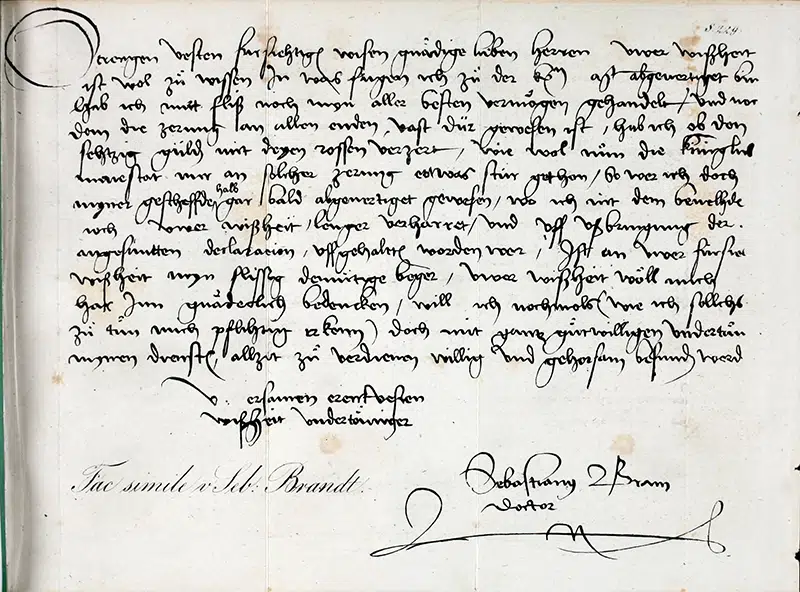 Strengen Vesten fürsichtigen wisen gnädige lieben herren Uwer wißheit
ist wol zü wissen In was fügen ich zü der abgevertiget bin
hab ich mitt fliß noch mym aller besten vermögen gehandelt / und nac
dem die zerung an allen enden, vast dür gewesen ist, hab ich ob den
sehtzig güld mit dryen rossen verzert, wie wol nün die künglich
maiestat mir an solcher zerung ettwas stür gethon, So wer ich doch
myner gescheffde halb gar bald abgevertiget gewesen, wo ich nit dem bevelhe
noch uwer wißheit, lenger verharret, und uff ußbringung der
angesunnen declaracion, uffgehalten worden wer, Ist an uwer fürsic
wißheit myn flissig demütige beger, uwer wißheit wöll mich
har Inn gnädeclich bedencken, will ich nochmols (wie ich sollichs
zü tün mich pflichtig erkenn) doch mit gantz gütwilligen undertän
mynen diensten, allzit zü verdienen willig und gehorsam befunden werd
V. ersamen erent Vesten
wißheit undertäniger
Fac simile v Seb. Brandt.
Sebastianus Brant
Doctor